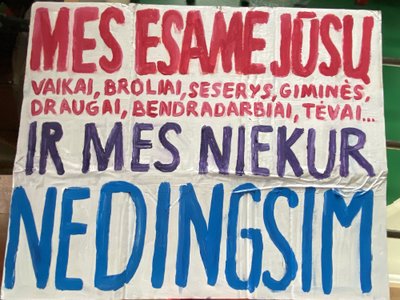 MES ESAME JŪSŲ
VAIKAI, BROLIAI, SESERYS, GIMINĖS,
DRAUGAI, BENDRADARBIAI, TĖVAI...
IR MES NIEKUR
NEDINGSIM